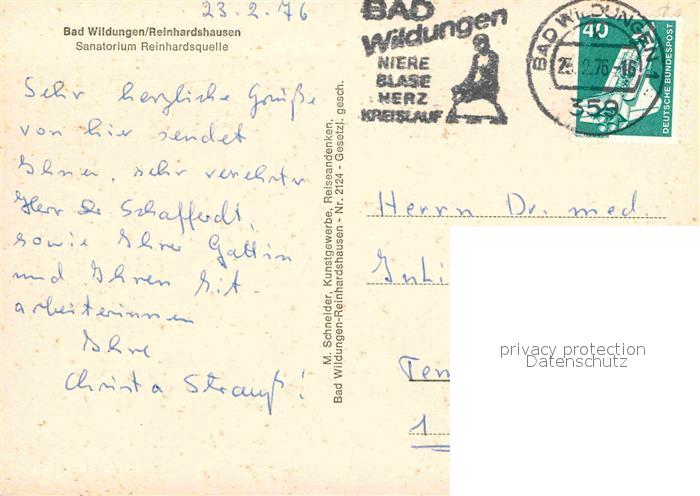 23.2.76
Bad Wildungen/Reinhardshausen
Sanatorium Reinhardsquelle
Sehr herzliche Grüße
von hier sendet
Ihnen, sehr verehrter
Herr Dr Schafferdt,
sowie Ihrer Gattin
und Ihren Mit-
arbeiterinnen
Ihre
Christa Strauß!
M. Schneider, Kunstgewerbe, Reiseandenken,
Bad Wildungen-Reinhardshausen - Nr. 2124 - Gesetzl. gesch.
BAD
Wildungen
NIERE
BLASE
HERZ
KREISLAUF
BAD WILDUNGEN 1
2.76
359
40
DEUTSCHE BUNDESPOST
Herrn Dr. med.
1
privacy protection
Datenschutz